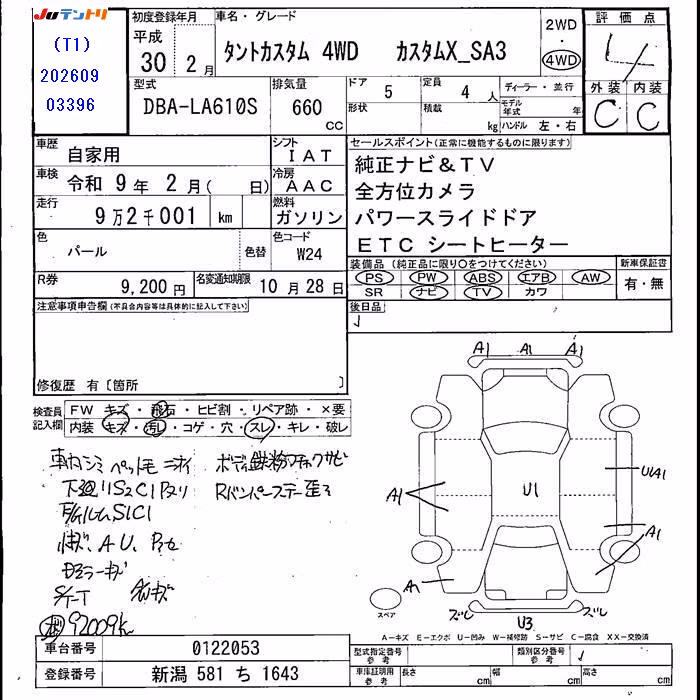 Juテントリ
(T1)
202609
03396
初度登録年月
平成
30 2月
車名・グレード
タントカスタム 4WD カスタムX_SA3
2WD
・
4WD
評価点
4
外装 内装
C C
型式
DBA-LA610S
排気量
660
cc
ドア
5
定員
4 人
ディーラー・並行
形状
積載
kg
モデル年式
年
ハンドル 左・右
車歴
自家用
シフト
IAT
車検
令和 9年 2月( 日)
冷房
AAC
走行
9万2千001 km
燃料
ガソリン
色
パール
色替
色コード
W24
R券
9,200円
名変通知期限
10月28日
セールスポイント(正常に機能するものに限ります)
純正ナビ&TV
全方位カメラ
パワースライドドア
ETC シートヒーター
装備品 (純正品に限り○をつけてください)
PS PW ABS エアB AW
SR ナビ TV カワ
新車保証書
有・無
後日品
注意事項申告欄(不具合内容等は具体的に記入して下さい)
修復歴 有〔箇所 〕
検査員
記入欄
FW キズ・飛石・ヒビ割・リペア跡・×要
内装 キズ・汚レ・コゲ・穴・スレ・キレ・破レ
車内シミ ペット毛 ニオイ
下廻りS2C1Pヌリ
S1C1
A U
92009k
ボディ鉄粉
Rバンパーステー歪み
A1 A1 A1
A1
U1
UA1
A1
A1
ズレ U3 ズレ
スペア
A-キズ E-エクボ U-凹み W-補修跡 S-サビ C-腐食 XX-交換済
車台番号
0122053
登録番号
新潟 581 ち 1643
型式指定番号
参考
類別区分番号
参考
車庫証明用
参考
長さ cm
幅 cm
高さ cm